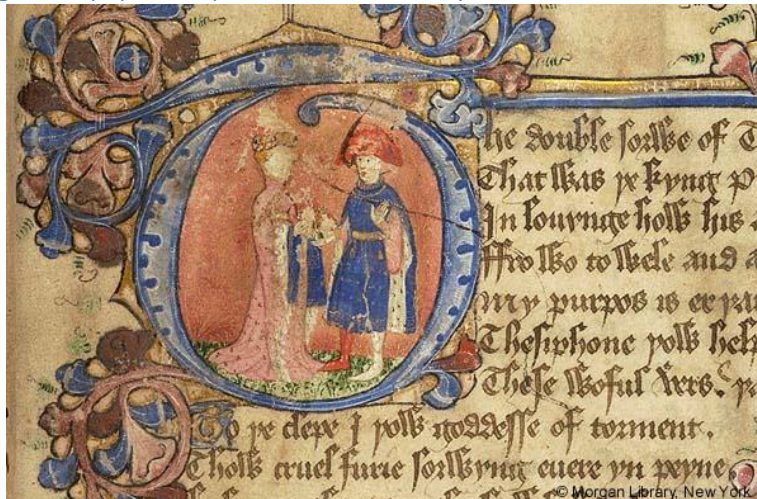 The double sorwe of T
That was þe kyng P
In lovynge how his a
ffro wo to wele and a
my purpos is er þat
Thesiphone yow help
These woful vers. þa
To þe clepe I yow goddesse of torment.
Thow cruel furie sorwyng evere yn peyne,
© Morgan Library, New York